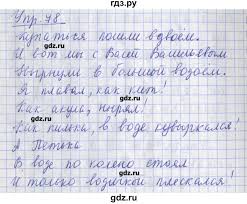 гдз.ру
Упр. 78
Купаться пошли вдвоём.
И вот мы с Васей Васильевым
Нырнули в большой водоём.
Я плавал, как кит!
Как акула, нырял!
Как пилька, в воде кувыркался!
А Петька
В воде по колено стоял
И только водичкой плескался!
гдз.ру